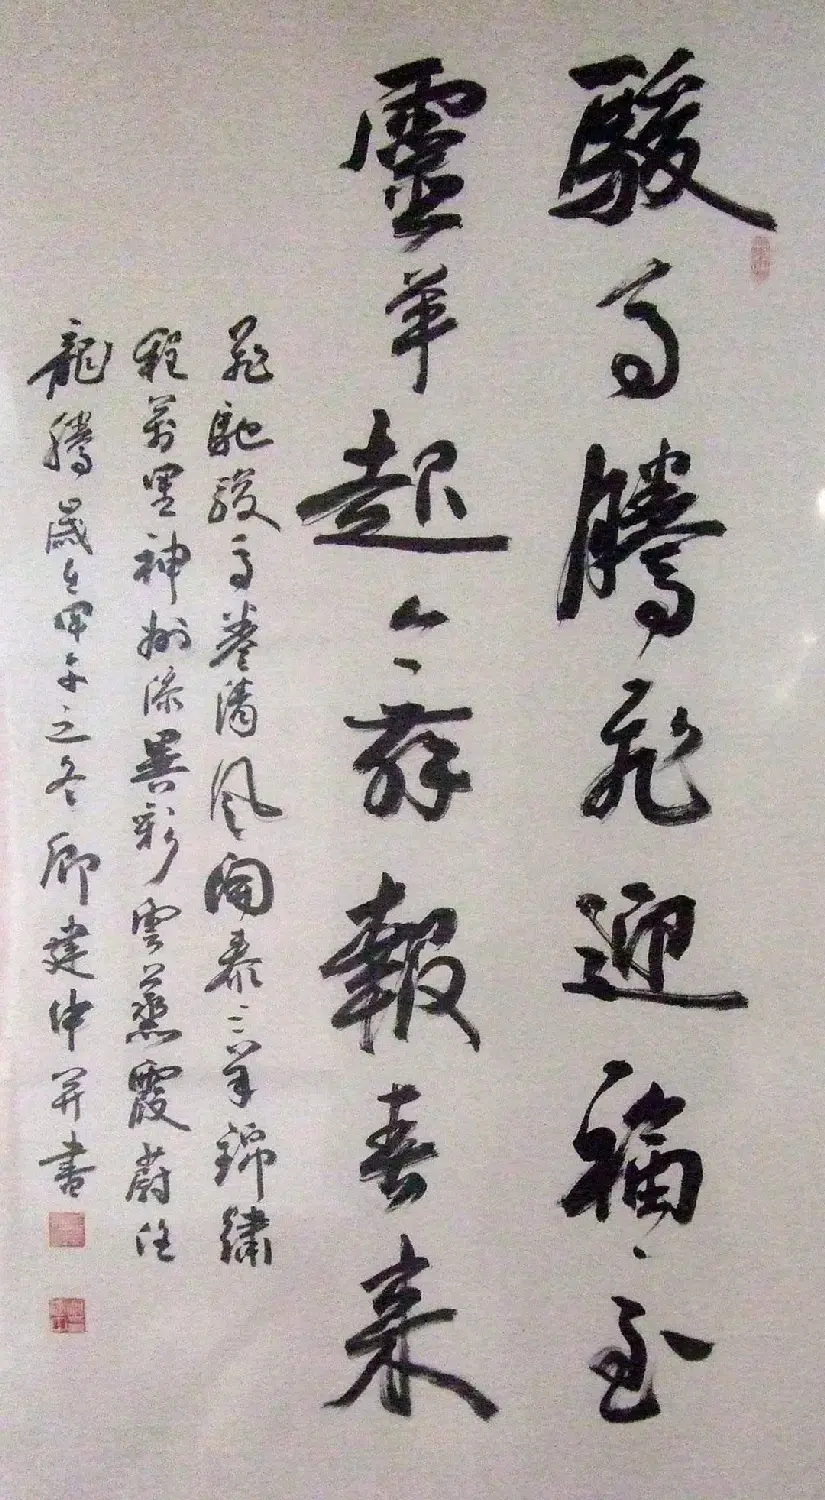 駿馬騰飛迎福至
靈羊起舞報春来
飛馳駿馬卷清風開泰三羊錦繡
程萬里神州添異彩雲蒸霞蔚任
龍騰歲在甲午之冬卿建中并書